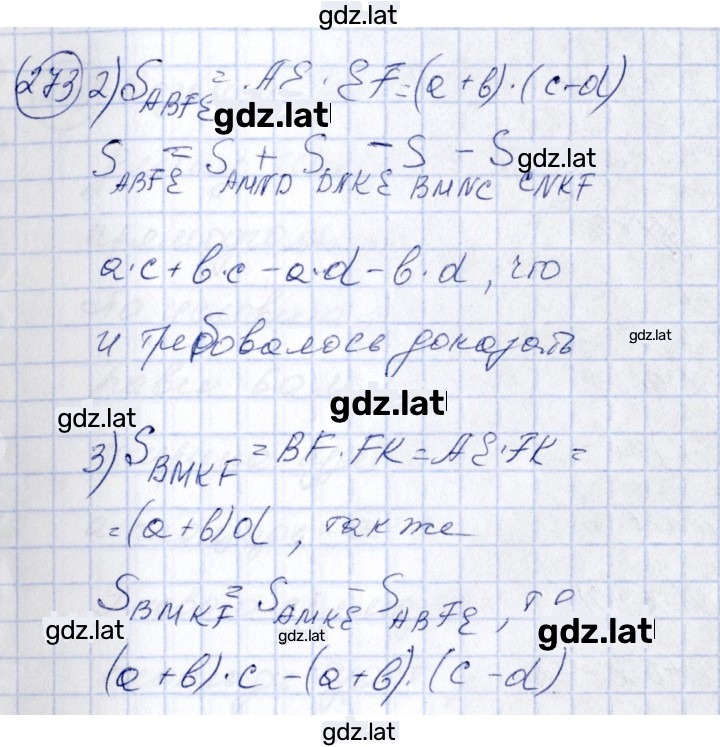 gdz.lat
(273) 2) S ABFE = AE · EF = (a+b)·(c-d)
gdz.lat
S ABFE = S AMND + S DNKE - S BMNC - S CNKF
gdz.lat
a·c + b·c - a·d - b·d, что
и требовалось доказать
gdz.lat
gdz.lat
gdz.lat
3) S BMKF = BF · FK = AE · FK =
= (a+b)d, также
S BMKF = S AMKE - S ABFE, то
gdz.lat
gdz.lat
gdz.lat
(a+b)·c - (a+b)·(c-d)
gdz.lat